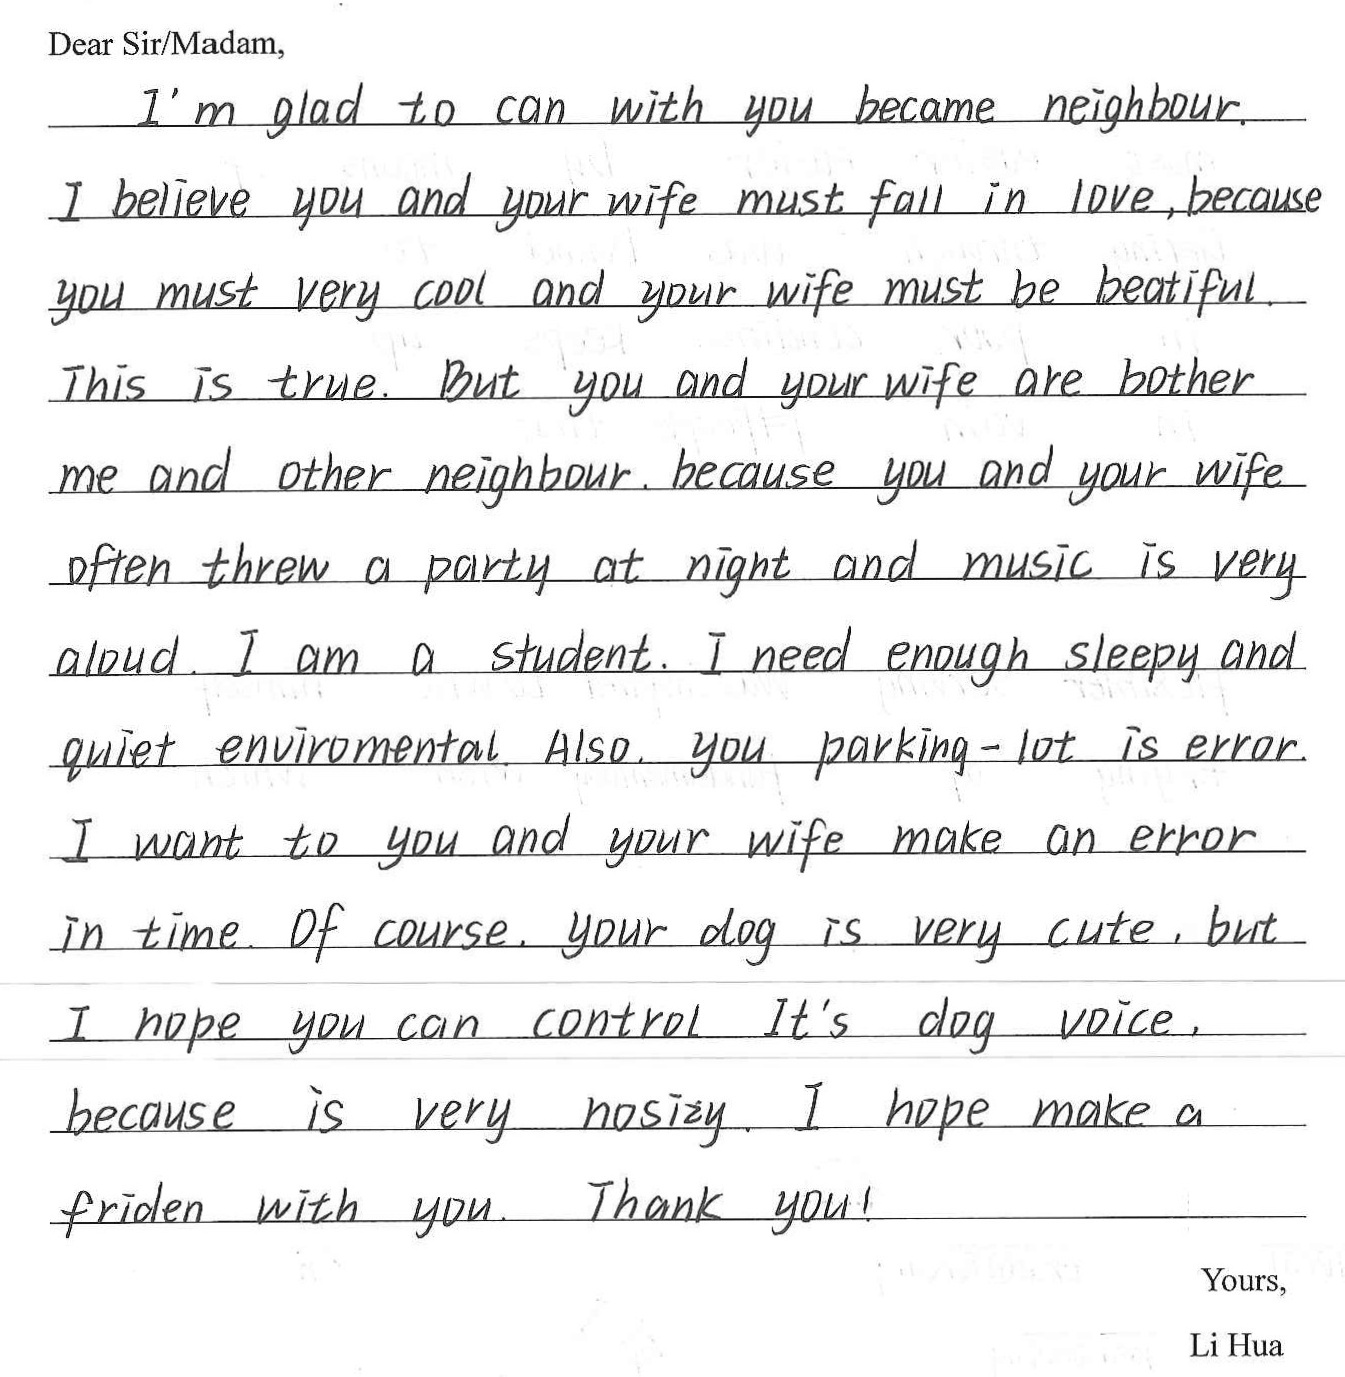 Dear Sir/Madam,
I'm glad to can with you became neighbour.
I believe you and your wife must fall in love, because
you must very cool and your wife must be beatiful.
This is true. But you and your wife are bother
me and other neighbour. because you and your wife
often threw a party at night and music is very
aloud. I am a student. I need enough sleepy and
quiet enviromental. Also, you parking-lot is error.
I want to you and your wife make an error
in time. Of course. your dog is very cute, but
I hope you can control It's dog voice,
because is very nosizy. I hope make a
friden with you. Thank you!
Yours,
Li Hua